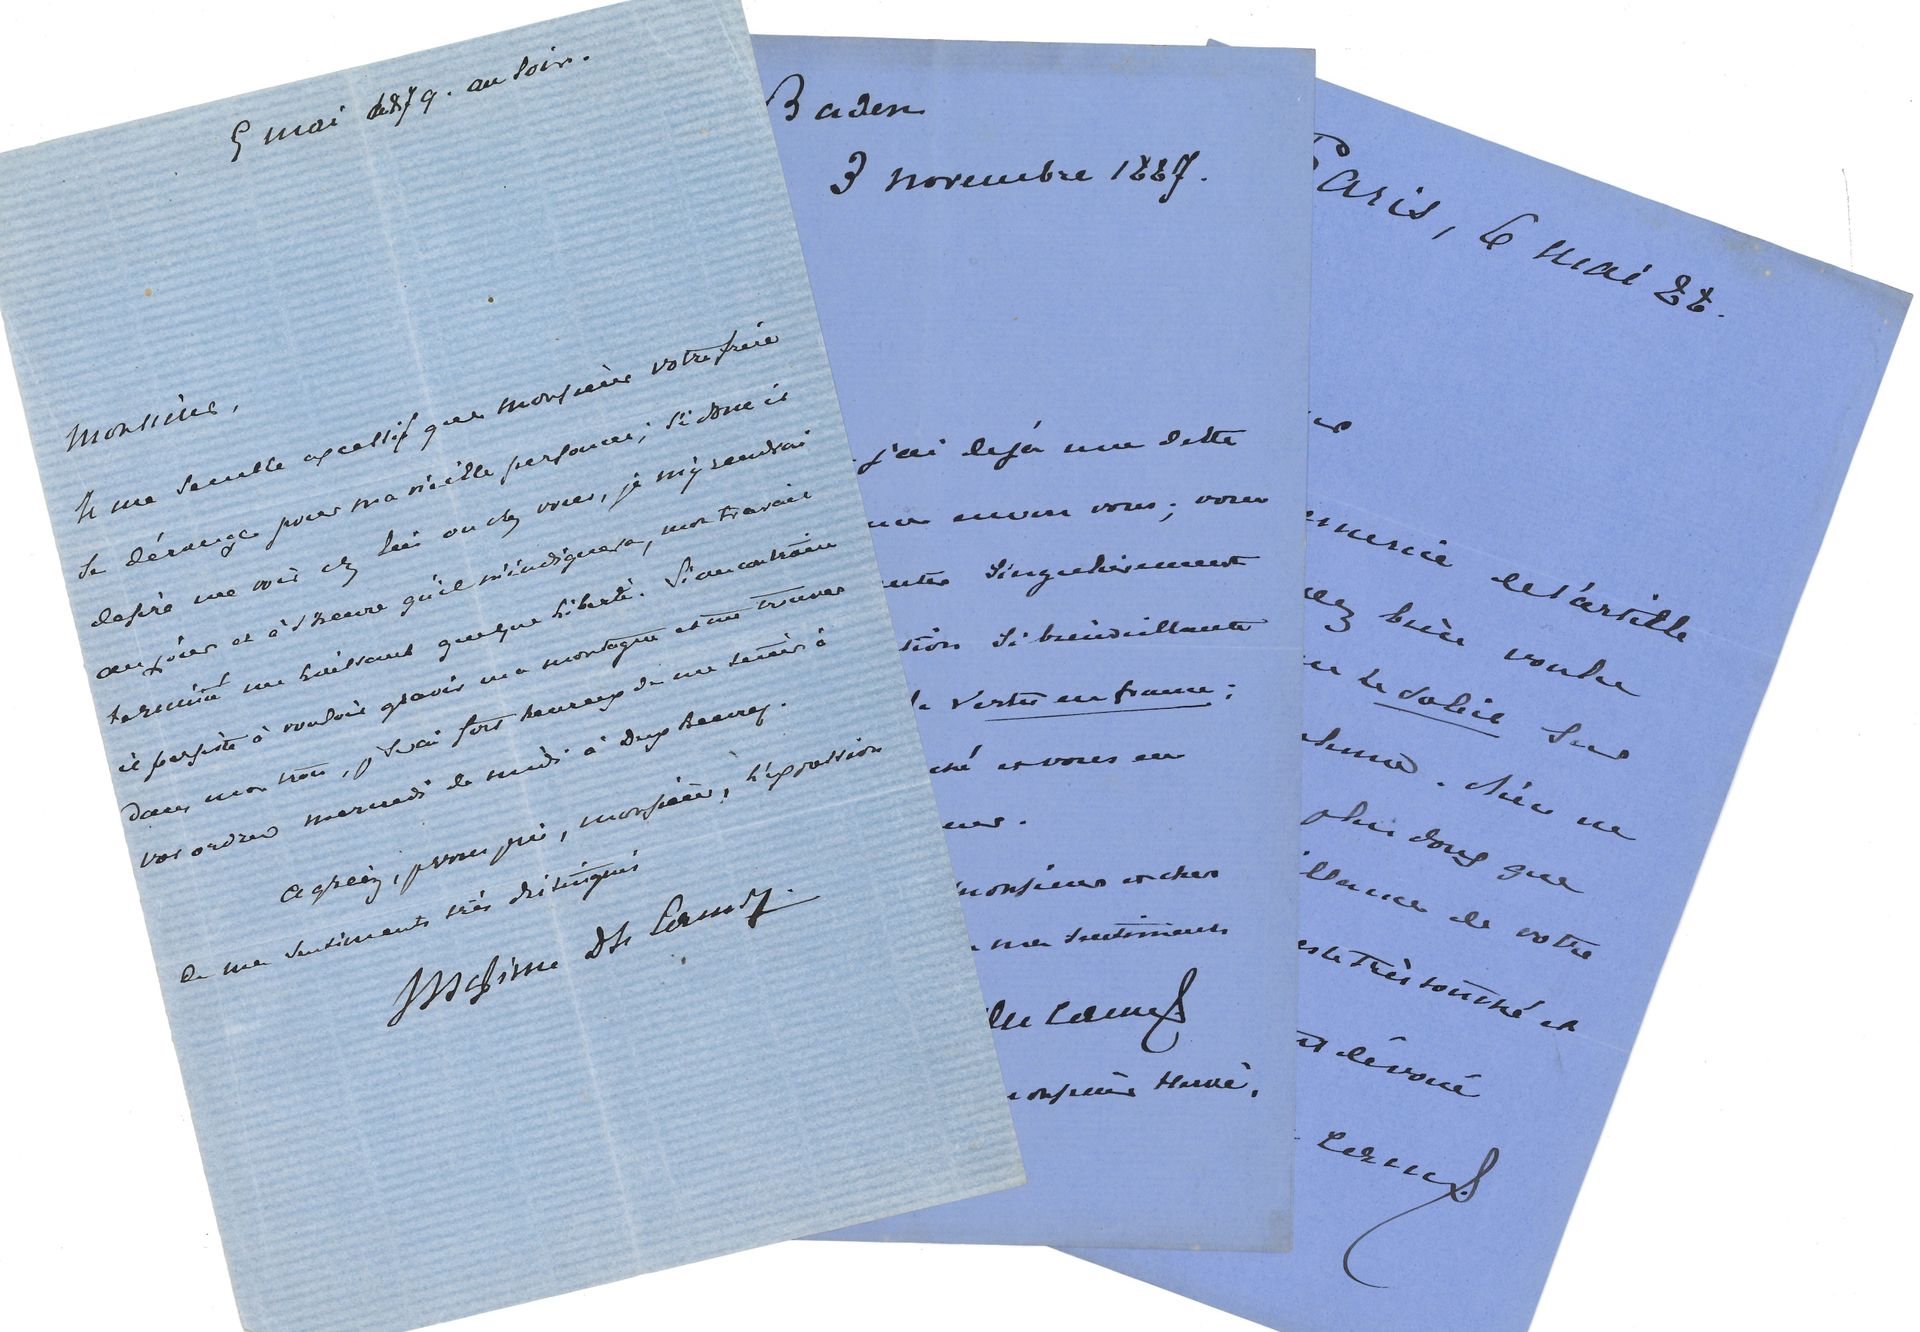 5 mai 1879. au soir.
Monsieur,
Il me semble excessif que monsieur votre frère
se dérange pour ma vieille personne; si donc il
désire me voir chez lui ou chez vous, je m'y rendrai
au jour et à l'heure qu'il m'indiquera, mon travail
terminé me laissant quelque liberté. Si au contraire
il persiste à vouloir gravir ma montagne et me trouver
dans mon trou, je serai fort heureux de me tenir à
vos ordres mercredi de midi à deux heures.
Agréez, je vous prie, monsieur, l'expression
de mes sentiments très distingués
Maxime Du Camp.
Baden
3 novembre 1887.
j'ai déjà une dette
envers vous; vous
singulièrement
si bienveillante
la vertu en france;
et vous en
monsieur et cher
mes sentiments
Du Camp
monsieur Hervé.
Paris, 6 mai 88.
de l'article
bien voulu
le Soleil sur
. Rien ne
plus doux que
de votre
très touché et
dévoué
Camp.